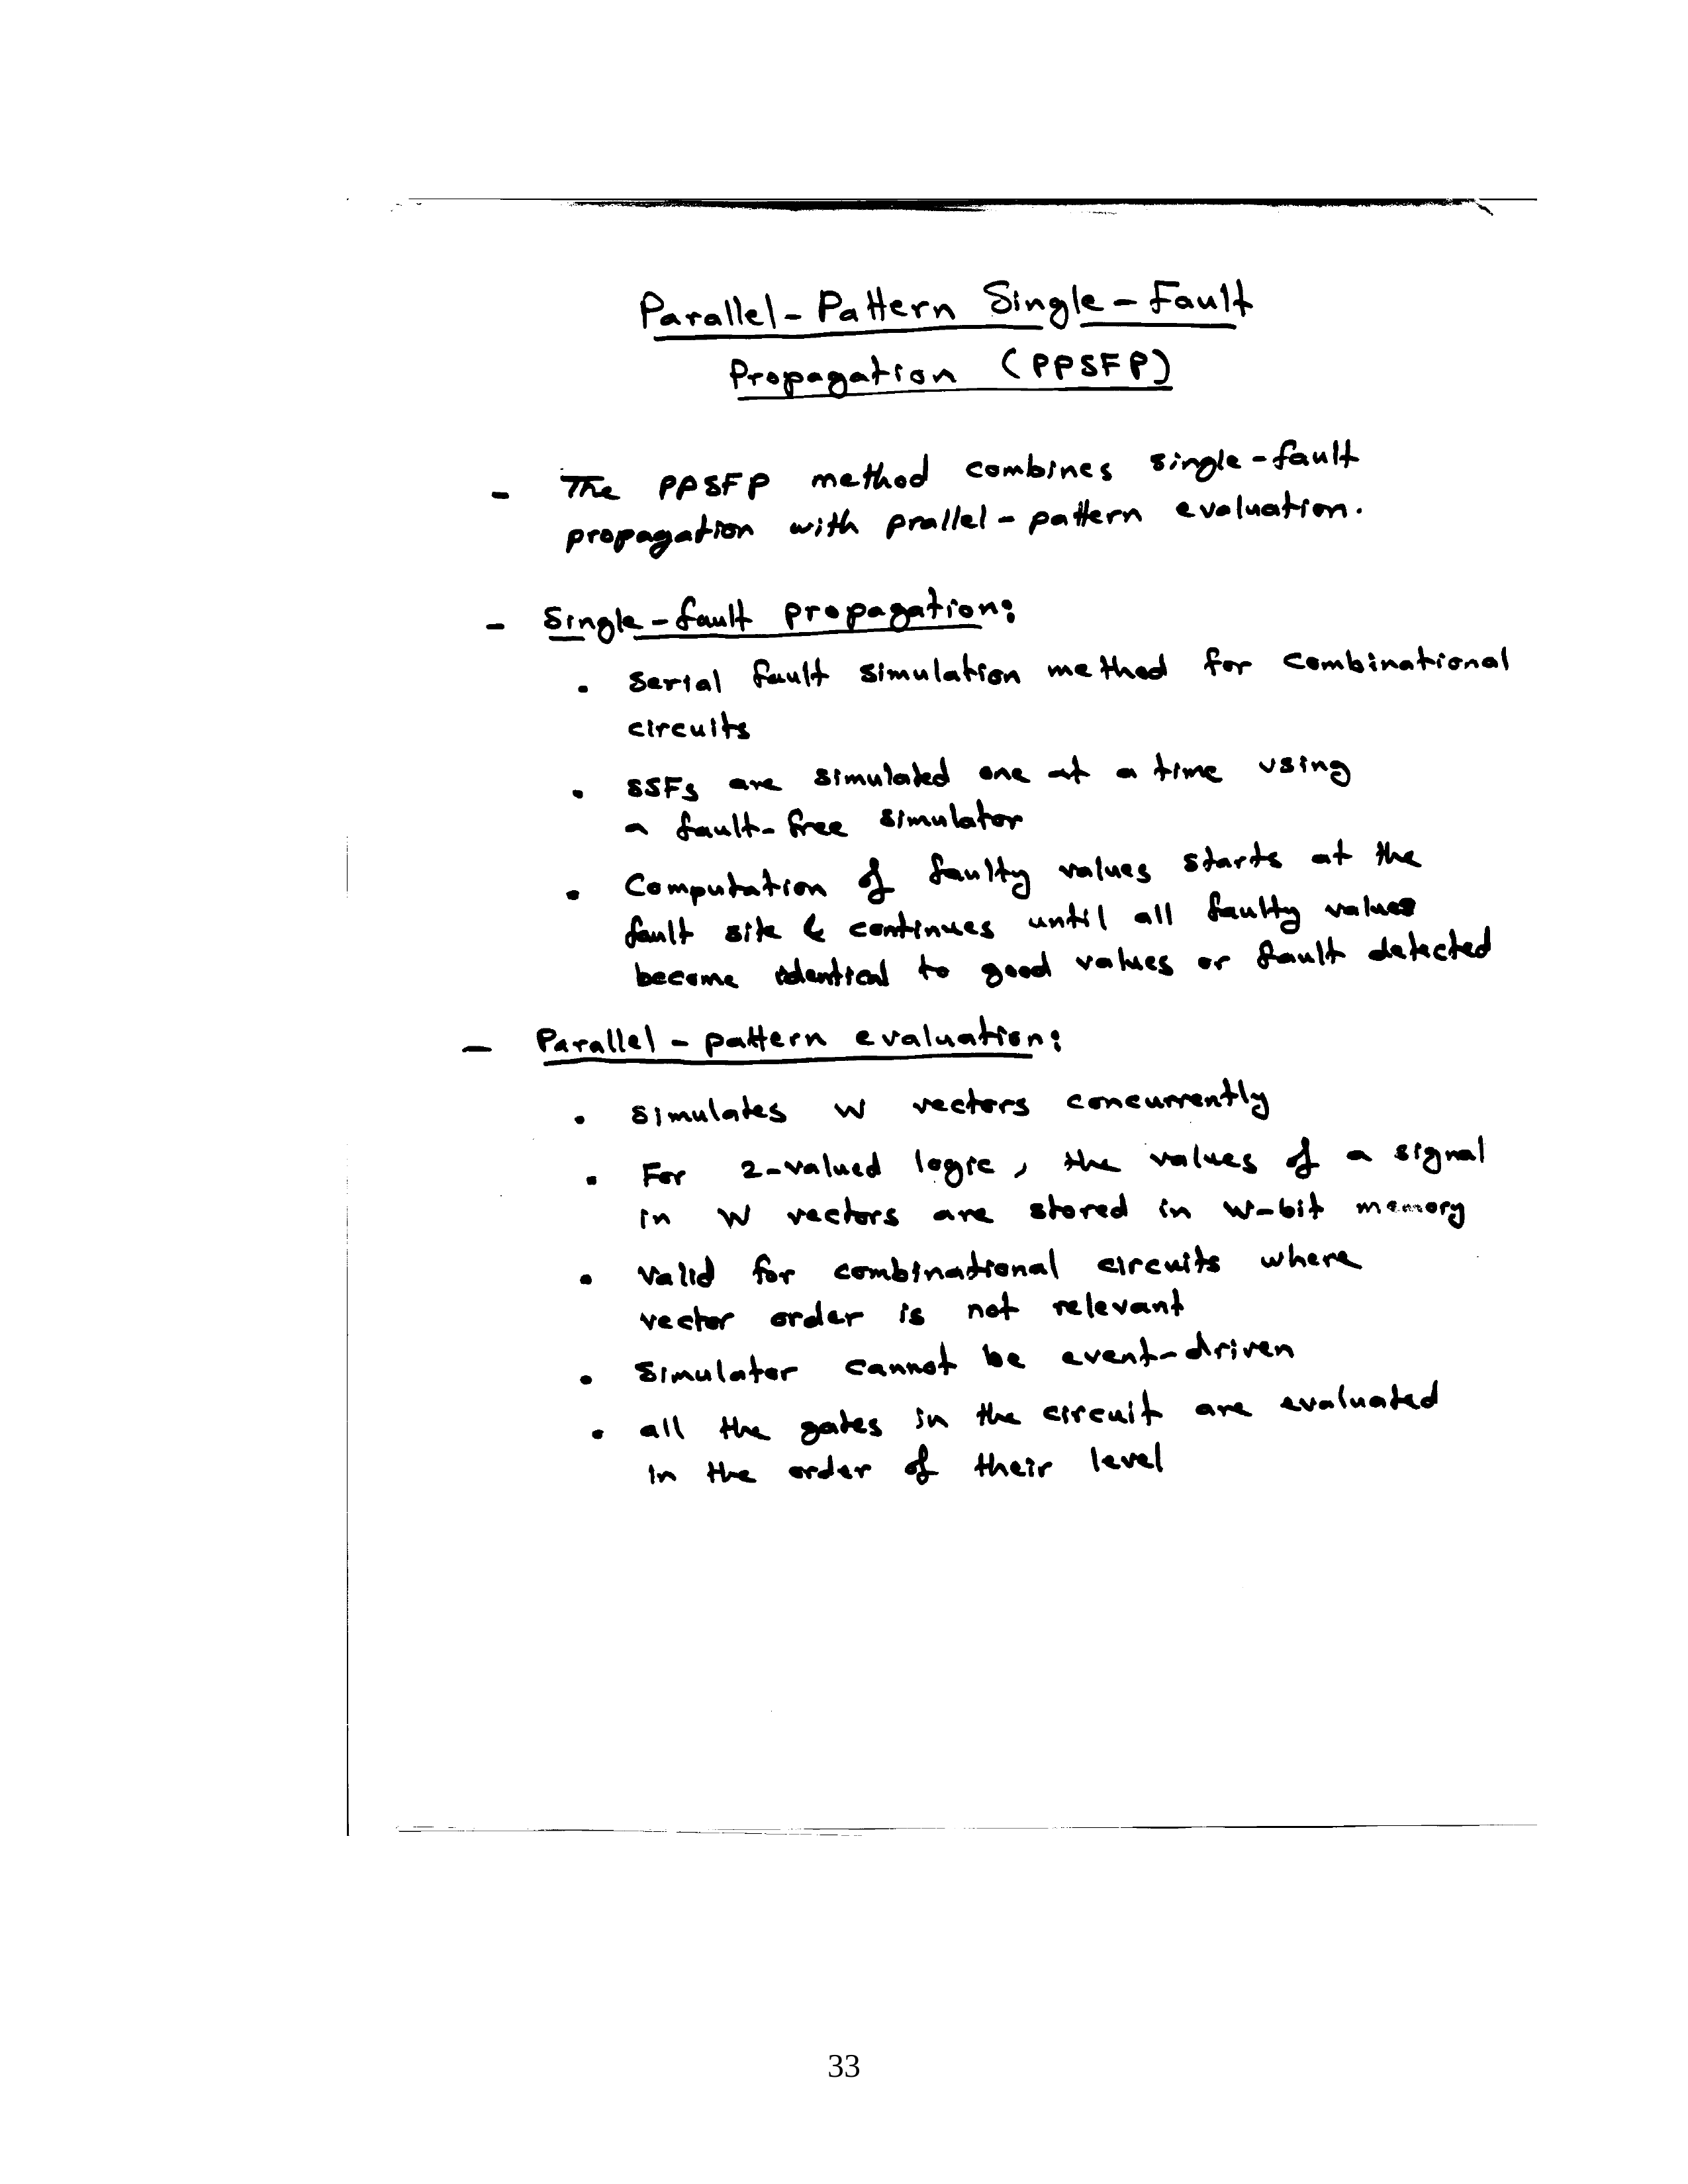 Parallel-Pattern Single-Fault
Propagation (PPSFP)
- The PPSFP method combines single-fault
propagation with prallel-pattern evaluation.
- Single-fault propagation:
• Serial fault simulation method for combinational
circuits
• SSFs are simulated one at a time using
a fault-free simulator
• Computation of faulty values starts at the
fault site & continues until all faulty values
become identical to good values or fault detected
- Parallel-pattern evaluation:
• Simulates W vectors concurrently
• For 2-valued logic, the values of a signal
in W vectors are stored in W-bit memory
• Valid for combinational circuits where
vector order is not relevant
• Simulator cannot be event-driven
• all the gates in the circuit are evaluated
in the order of their level
33